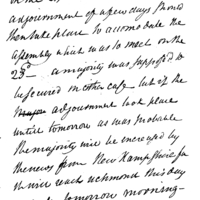 adjournment of a few days should
then take place to accomodate the
Assembly which was to meet on the
23d. a majority was supposed to
be secured in either case but if the
adjournment took place
until tomorrow as was probable
the majority will be increased by
the news from New Hampshire for
this day
tomorrow morning-